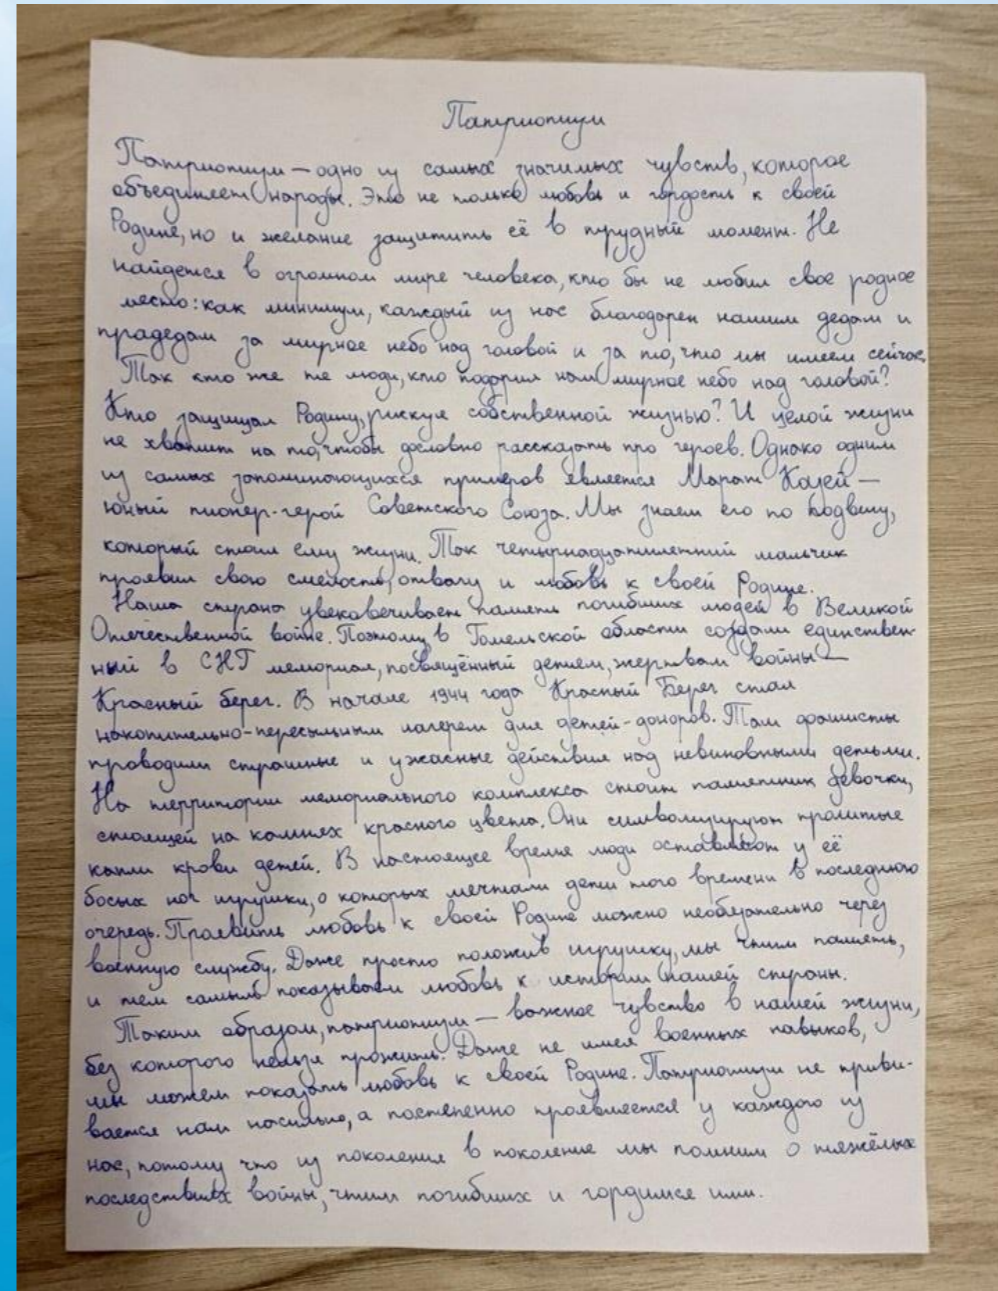 Патриотизм
Патриотизм – одно из самых значимых чувств, которое
объединяет народы. Это не только любовь и гордость к своей
Родине, но и желание защитить её в трудный момент. Не
найдется в огромном мире человека, кто бы не любил свое родное
место: как минимум, каждый из нас благодарен нашим дедам и
прадедам за мирное небо над головой и за то, что мы имеем сейчас.
Так кто же те люди, кто подарил нам мирное небо над головой?
Кто защищал Родину, рискуя собственной жизнью? И целой жизни
не хватит на то, чтобы дословно рассказать про героев. Однако одним
из самых запоминающихся примеров является Марат Казей –
юный пионер-герой Советского Союза. Мы знаем его по подвигу,
который стоил ему жизни. Так четырнадцатилетний мальчик
проявил свою смелость, отвагу и любовь к своей Родине.
Наша страна увековечивает память погибших людей в Великой
Отечественной войне. Поэтому в Гомельской области создали единствен-
ный в СНГ мемориал, посвящённый детям, жертвам войны –
Красный берег. В начале 1944 года Красный Берег стал
накопительно-пересыльным лагерем для детей-доноров. Там фашисты
проводили страшные и ужасные действия над невиновными детьми.
На территории мемориального комплекса стоит памятник девочки,
стоящей на камнях красного цвета. Они символизируют пролитые
капли крови детей. В настоящее время люди оставляют у её
босых ног игрушки, о которых мечтали дети того времени в последнюю
очередь. Проявить любовь к своей Родине можно необязательно через
военную службу. Даже просто положив игрушку, мы чтим память,
и тем самым показываем любовь к истории нашей страны.
Таким образом, патриотизм – важное чувство в нашей жизни,
без которого нельзя прожить. Даже не имея военных навыков,
мы можем показать любовь к своей Родине. Патриотизм не приви-
вается нам насильно, а постепенно проявляется у каждого из
нас, потому что из поколения в поколение мы помним о тяжёлых
последствиях войны, чтим погибших и гордимся ими.